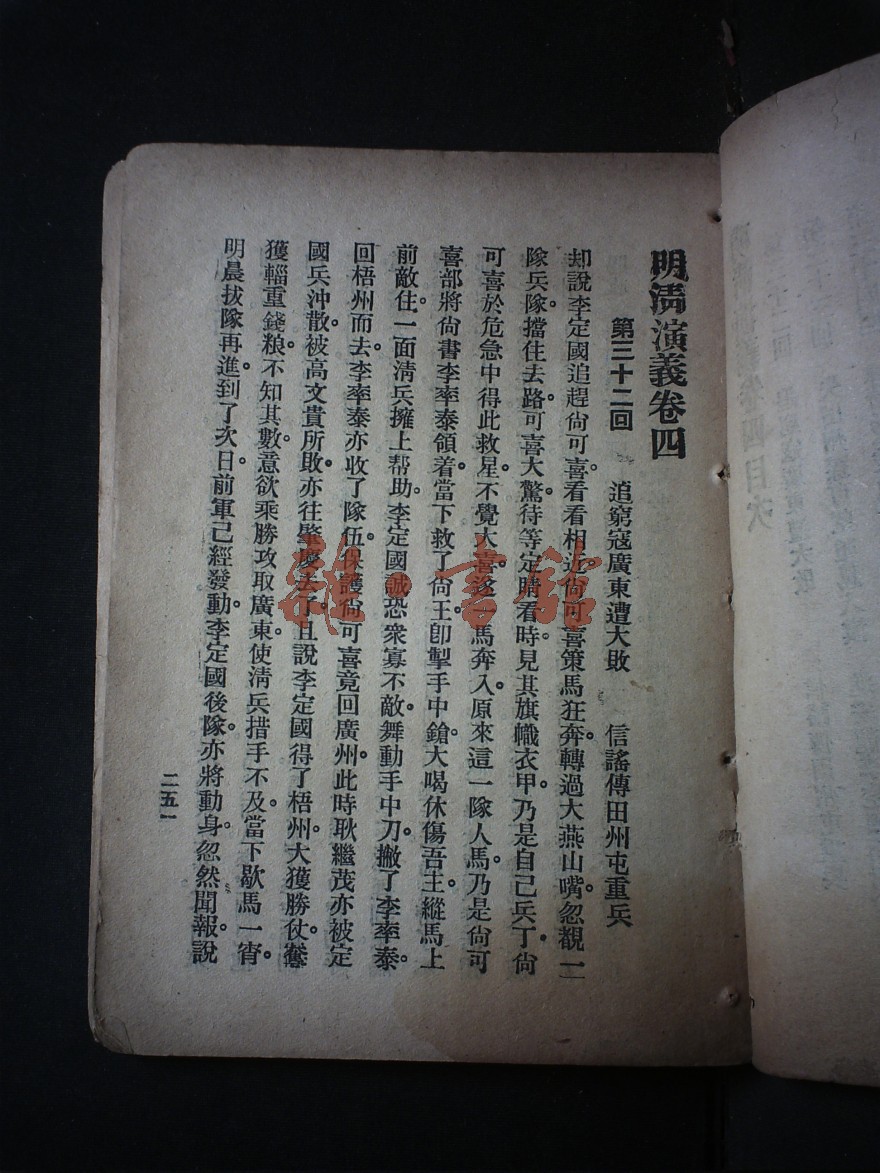 明清演義卷四
第三十二回　追窮寇廣東遭大敗　信謠傳田州屯重兵
却說李定國追趕尙可喜看看相近尙可喜策馬狂奔。轉過大燕山嘴。忽覩一
隊兵隊擋住去路可喜大驚。待等定睛看時。見其旗幟衣甲。乃是自己兵丁。尙
可喜於危急中得此救星。不覺大喜。遂一馬奔入。原來這一隊人馬。乃是尙可
喜部將尙書李率泰領着。當下救了尙王。卽掣手中鎗。大喝休傷吾主。縱馬上
前敵住。一面淸兵擁上帮助。李定國誠恐衆寡不敵。舞動手中刀。撇了李率泰。
回梧州而去。李率泰亦收了隊伍。保護尙可喜竟回廣州。此時耿繼茂亦被定
國兵沖散。被高文貴所敗。亦往肇慶去了。且說李定國得了梧州。大獲勝仗。奪
獲輜重錢粮。不知其數。意欲乘勝攻取廣東。使淸兵措手不及。當下歇馬一宵。
明晨拔隊再進。到了次日。前軍已經發動。李定國後隊。亦將動身。忽然聞報說
二五一
雜·書館